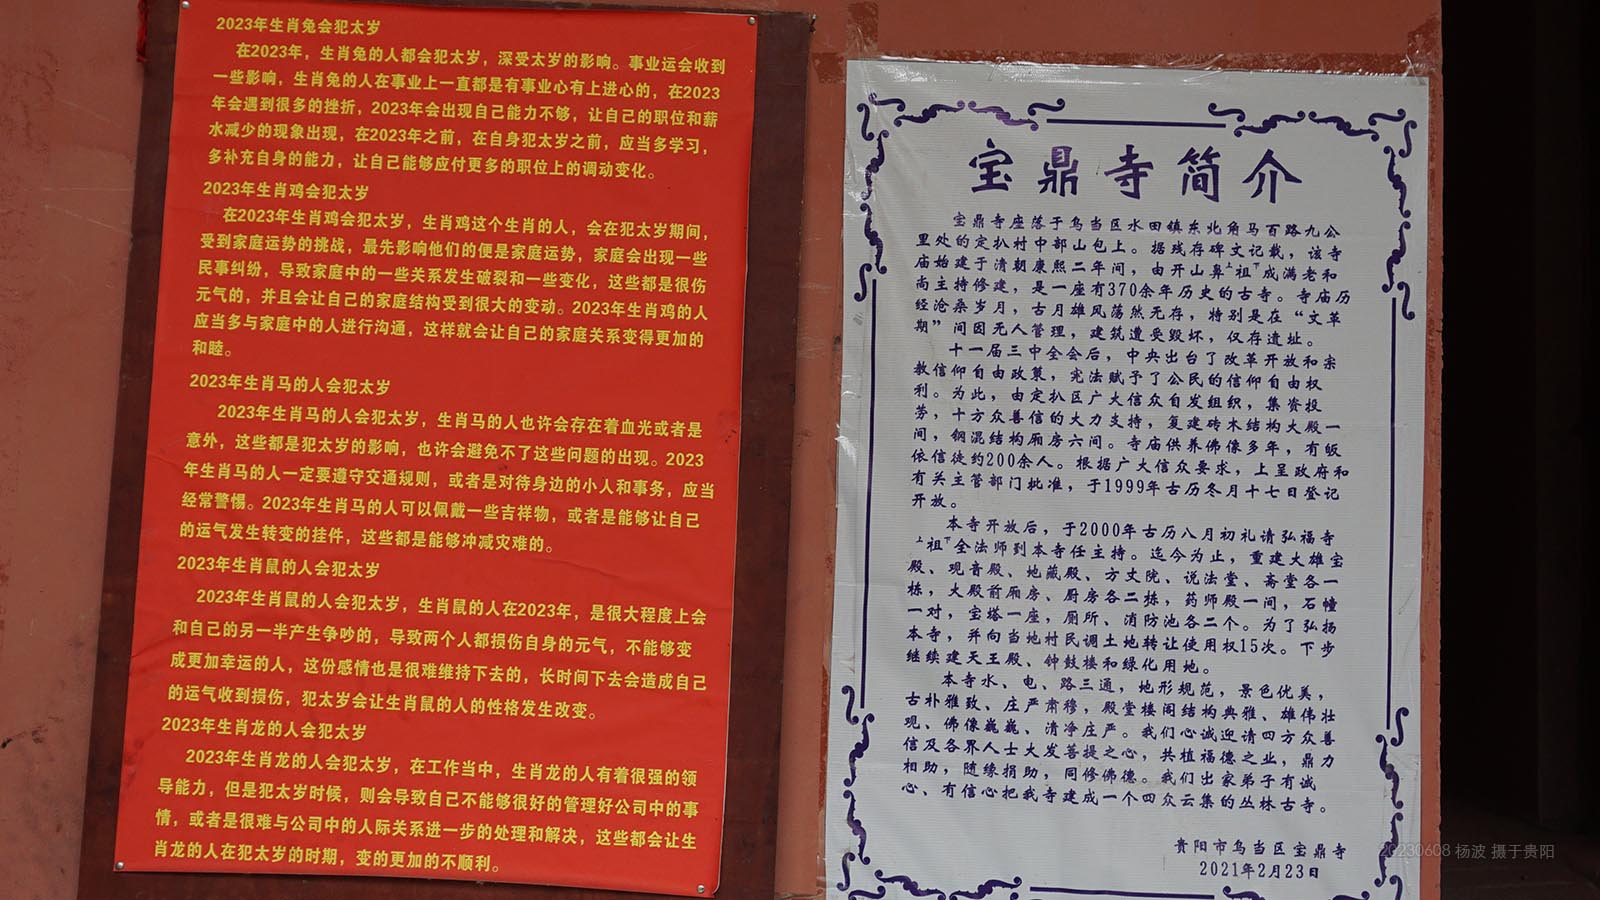 2023年生肖兔会犯太岁
在2023年，生肖兔的人都会犯太岁，深受太岁的影响。事业运会收到
一些影响，生肖兔的人在事业上一直都是有事业心有上进心的，在2023
年会遇到很多的挫折，2023年会出现自己能力不够，让自己的职位和薪
水减少的现象出现，在2023年之前，在自身犯太岁之前，应当多学习，
多补充自身的能力，让自己能够应付更多的职位上的调动变化。
2023年生肖鸡会犯太岁
在2023年生肖鸡会犯太岁，生肖鸡这个生肖的人，会在犯太岁期间，
受到家庭运势的挑战，最先影响他们的便是家庭运势，家庭会出现一些
民事纠纷，导致家庭中的一些关系发生破裂和一些变化，这些都是很伤
元气的，并且会让自己的家庭结构受到很大的变动。2023年生肖鸡的人
应当多与家庭中的人进行沟通，这样就会让自己的家庭关系变得更加的
和睦。
2023年生肖马的人会犯太岁
2023年生肖马的人会犯太岁，生肖马的人也许会存在着血光或者是
意外，这些都是犯太岁的影响，也许会避免不了这些问题的出现。2023
年生肖马的人一定要遵守交通规则，或者是对待身边的小人和事务，应当
经常警惕。2023年生肖马的人可以佩戴一些吉祥物，或者是能够让自己
的运气发生转变的挂件，这些都是能够冲减灾难的。
2023年生肖鼠的人会犯太岁
2023年生肖鼠的人会犯太岁，生肖鼠的人在2023年，是很大程度上会
和自己的另一半产生争吵的，导致两个人都损伤自身的元气，不能够变
成更加幸运的人，这份感情也是很难维持下去的，长时间下去会造成自己
的运气收到损伤，犯太岁会让生肖鼠的人的性格发生改变。
2023年生肖龙的人会犯太岁
2023年生肖龙的人会犯太岁，在工作当中，生肖龙的人有着很强的领
导能力，但是犯太岁时候，则会导致自己不能够很好的管理好公司中的事
情，或者是很难与公司中的人际关系进一步的处理和解决，这些都会让生
肖龙的人在犯太岁的时期，变的更加的不顺利。
宝鼎寺简介
宝鼎寺座落于乌当区水田镇东北角马百路九公
里处的定扒村中部山包上。据残存碑文记载，该寺
庙始建于清朝康熙二年间，由开山鼻上祖下成满老和
尚主持修建，是一座有370余年历史的古寺。寺庙历
经沧桑岁月，古月雄风荡然无存，特别是在“文革
期”间因无人管理，建筑遭受毁坏，仅存遗址。
十一届三中全会后，中央出台了改革开放和宗
教信仰自由政策，宪法赋予了公民的信仰自由权
利。为此，由定扒区广大信众自发组织，集资投
劳，十方众善信的大力支持，复建砖木结构大殿一
间，钢混结构厢房六间。寺庙供养佛像多年，有皈
依信徒约200余人。根据广大信众要求，上呈政府和
有关主管部门批准，于1999年古历冬月十七日登记
开放。
本寺开放后，于2000年古历八月初礼请弘福寺
上祖下全法师到本寺任主持。迄今为止，重建大雄宝
殿、观音殿、地藏殿、方丈院、说法堂、斋堂各一
栋，大殿前厢房、厨房各二栋，药师殿一间，石幢
一对，宝塔一座，厕所、消防池各二个。为了弘扬
本寺，并向当地村民调土地转让使用权15次。下步
继续建天王殿、钟鼓楼和绿化用地。
本寺水、电、路三通，地形规范，景色优美，
古朴雅致、庄严肃穆，殿堂楼阁结构典雅、雄伟壮
观、佛像巍巍、清净庄严。我们心诚迎请四方众善
信及各界人士大发菩提之心，共植福德之业，鼎力
相助，随缘捐助，同修佛德。我们出家弟子有诚
心、有信心把我寺建成一个四众云集的丛林古寺。
贵阳市乌当区宝鼎寺
2021年2月23日
20230608 杨波 摄于贵阳